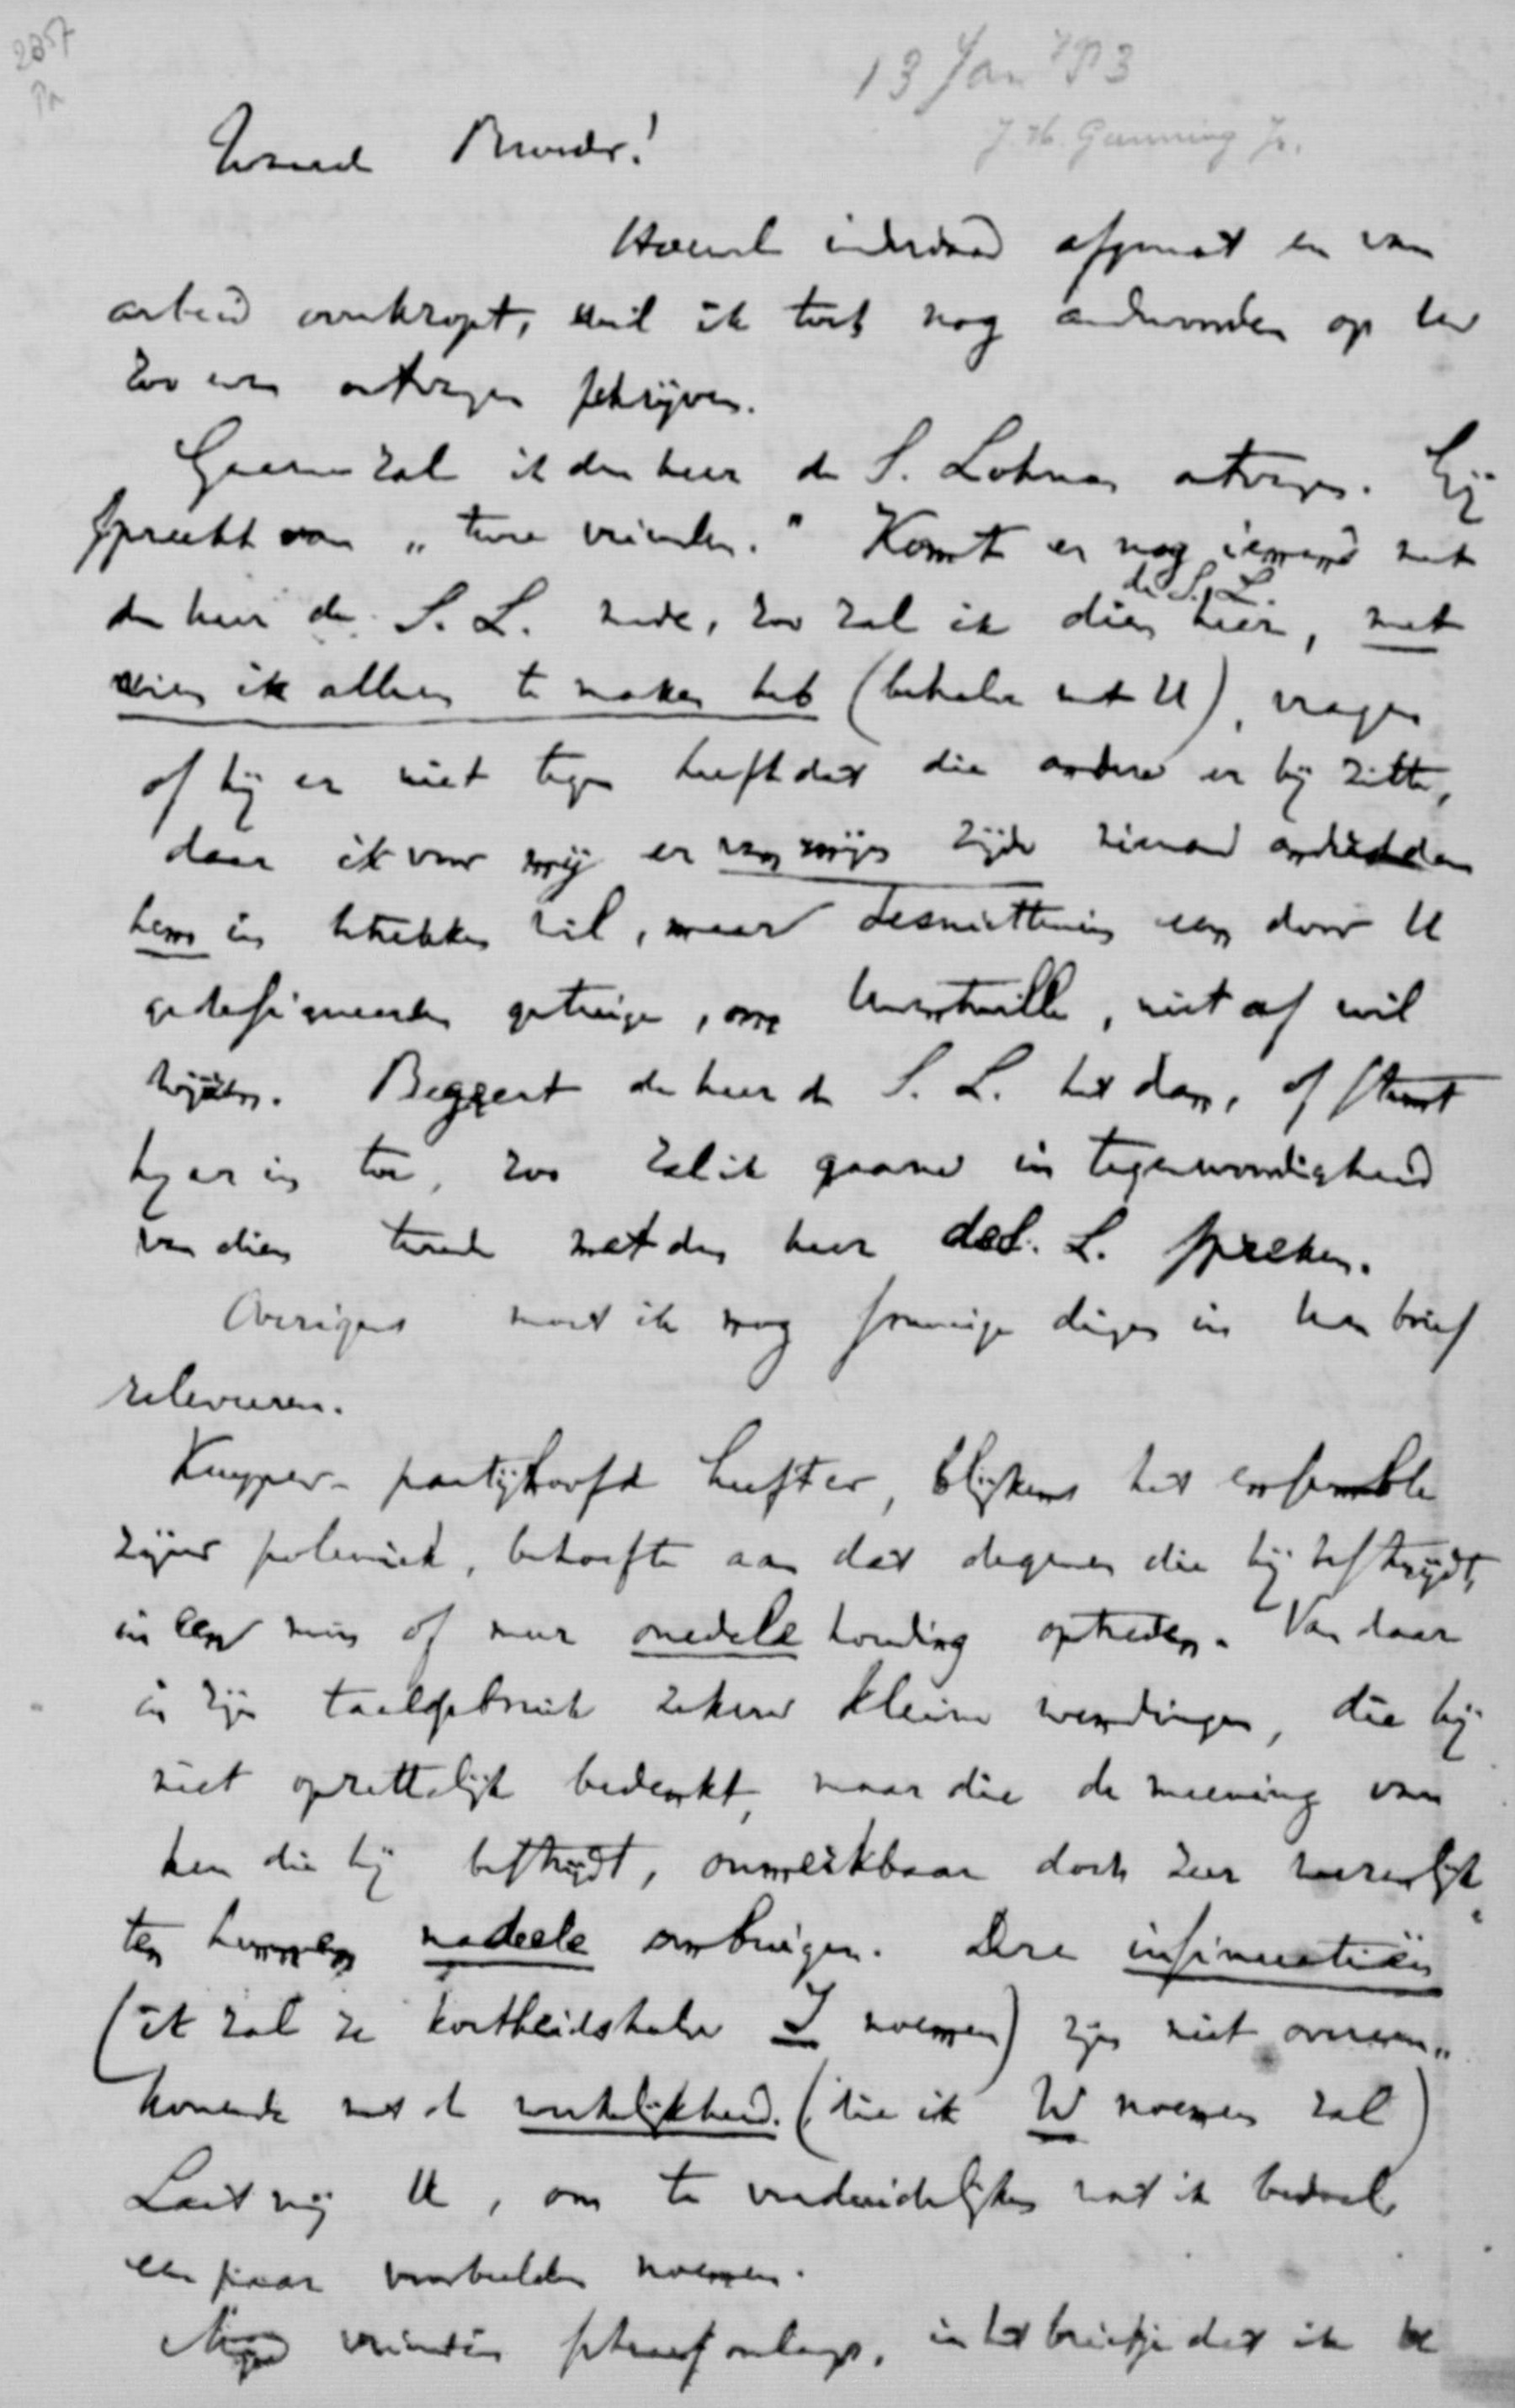 2257
13 Jan '93
J. H. Gunning Jr.
Waarde Broeder!
Hoewel inderdaad afgemat en van
arbeid overkropt, wil ik toch nog antwoorden op uw
zoo even ontvangen schrijven.
Gaarne zal ik den heer de S. Lohman ontvangen. Gij
spreekt van „twee vrienden." Komt er nog iemand met
den heer de S. L. mede, zoo zal ik dien heer de S. L., met
wien ik alleen te maken heb (behalve met U), vragen
of hij er niet tegen heeft dat die andere er bij zitte,
daar ik voor mij er van mijn zijde niemand anders dan
hem in betrekken wil, maar desniettemin een door U
gedesigneerden getuige, om Uwentwille, niet af wil
wijzen. Begeert de heer de S. L. het dan, of stemt
hij er in toe, zoo zal ik gaarne in tegenwoordigheid
van dien tweede met den heer de S. L. spreken.
Overigens moet ik nog sommige dingen in uw brief
releveeren.
Kuyper-partijhoofd heeft er, blijkens het ensemble
zijner polemiek, behoefte aan dat degenen die hij bestrijdt,
in een min of meer onedele houding optreden. Van daar
in zijn taalgebruik zekere kleine wendingen, die hij
niet opzettelijk bedenkt, maar die de meening van
hen die hij bestrijdt, onmerkbaar doch zeer wezenlijk
ten hunnen nadeele ombuigen. Deze insinuatiën
(ik zal ze kortheidshalve I noemen) zijn niet overeen„
komende met de werkelijkheid. (die ik W noemen zal)
Laat mij U, om te verduidelijken wat ik bedoel,
een paar voorbeelden noemen.
vriendin schreef onlangs, in het briefje dat ik U